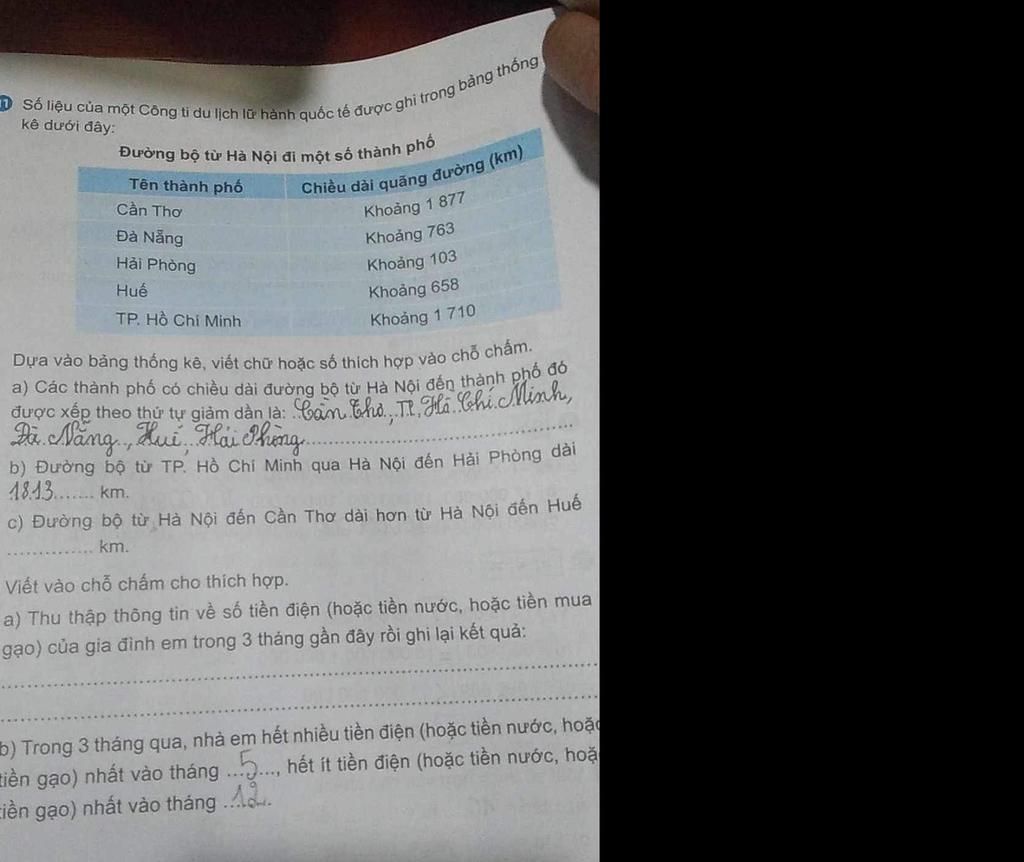 11 Số liệu của một Công ti du lịch lữ hành quốc tế được ghi trong bảng thống
kê dưới đây:
Đường bộ từ Hà Nội đi một số thành phố
Tên thành phố Chiều dài quãng đường (km)
Cần Thơ Khoảng 1 877
Đà Nẵng Khoảng 763
Hải Phòng Khoảng 103
Huế Khoảng 658
TP. Hồ Chí Minh Khoảng 1 710
Dựa vào bảng thống kê, viết chữ hoặc số thích hợp vào chỗ chấm.
a) Các thành phố có chiều dài đường bộ từ Hà Nội đến thành phố đó
được xếp theo thứ tự giảm dần là: Cần Thơ, TP, Hồ Chí Minh,
Đà Nẵng, Huế, Hải Phòng
b) Đường bộ từ TP. Hồ Chí Minh qua Hà Nội đến Hải Phòng dài
1813....... km.
c) Đường bộ từ Hà Nội đến Cần Thơ dài hơn từ Hà Nội đến Huế
.............. km.
Viết vào chỗ chấm cho thích hợp.
a) Thu thập thông tin về số tiền điện (hoặc tiền nước, hoặc tiền mua
gạo) của gia đình em trong 3 tháng gần đây rồi ghi lại kết quả:
b) Trong 3 tháng qua, nhà em hết nhiều tiền điện (hoặc tiền nước, hoặc
tiền gạo) nhất vào tháng ...5..., hết ít tiền điện (hoặc tiền nước, hoặ
tiền gạo) nhất vào tháng ...12..